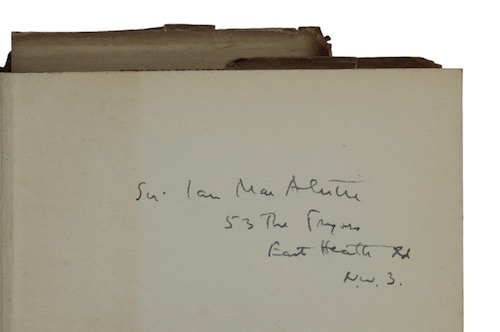 Sir. Ian MacAlister
53 The Pryors
East Heath Rd
N.W.3.